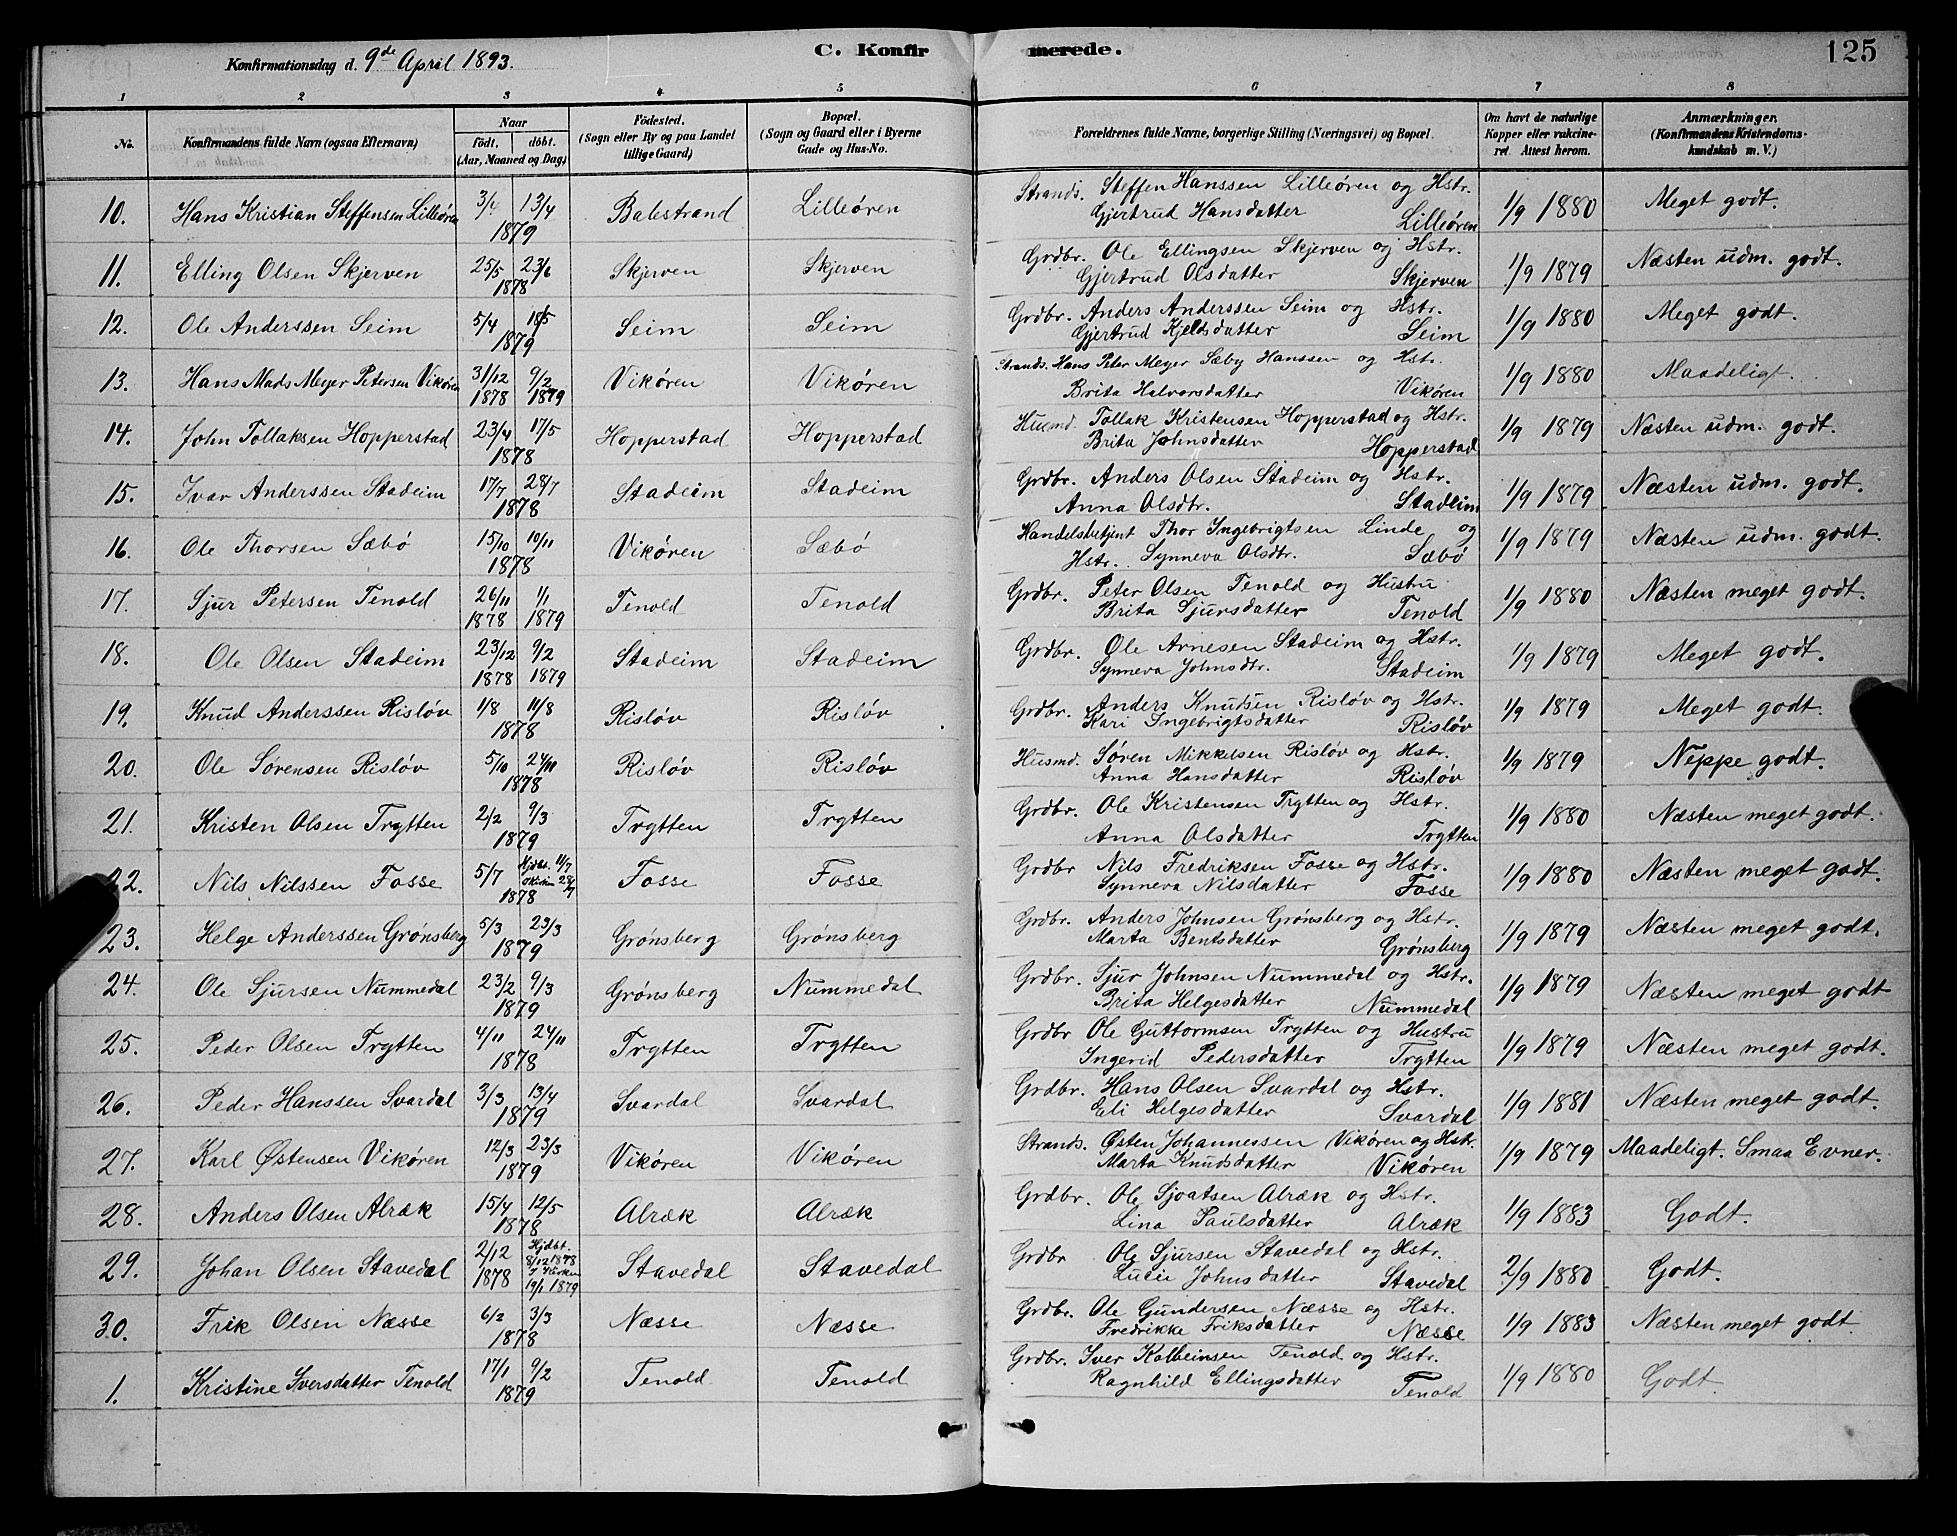 Konfirmationsdag d. 9de April 1893.
C. Konfirmerede.
125
1 2 3 4 5 6 7 8
No.
Konfirmandens fulde Navn (ogsaa Efternavn)
Naar
födt. döbt.
(Aar, Maaned og Dag)
Födested.
(Sogn eller By og paa Landet tillige Gaard)
Bopæl.
(Sogn og Gaard eller i Byerne Gade og Hus-No.
Forældrenes fulde Navne, borgerlige Stilling (Næringsvei) og Bopæl.
Om havt de naturlige Kopper eller vakcineret. Attest herom.
Anmærkninger.
(Konfirmandens Kristendomskundskab m. V.)
10. Hans Kristian Steffensen Lilleøren 3/4 13/4 1879 Balestrand Lilleøren Strands. Steffen Hanssen Lilleøren og Hstr. 1/9 1880 Meget godt.
Gjertrud Hansdatter Lilleøren
11. Elling Olsen Skjerven 25/5 23/6 1878 Skjerven Skjerven Grdbr. Ole Ellingsen Skjerven og Hstr. 1/9 1879 Næsten udm. godt.
Gjertrud Olsdatter Skjerven
12. Ole Anderssen Seim 5/4 18/5 1879 Seim Seim Grdbr. Anders Anderssen Seim og Hstr. 1/9 1880 Meget godt.
Gjertrud Kjeldsdatter Seim
13. Hans Mads Meyer Petersen Vikøren 31/12 1878 9/2 1879 Vikøren Vikøren Strands. Hans Peter Meyer Sæby Hanssen og Hstr. 1/9 1880 Maadeligt.
Brita Halvorsdatter Vikøren
14. John Tollaksen Hopperstad 23/4 17/5 1878 Hopperstad Hopperstad Husmd. Tollak Kristensen Hopperstad og Hstr. 1/9 1879 Næsten udm. godt.
Brita Johnsdatter Hopperstad
15. Ivar Anderssen Stadeim 17/7 28/7 1878 Stadeim Stadeim Grdbr. Anders Olsen Stadeim og Hstr. 1/9 1879 Næsten udm. godt.
Anna Olsdtr. Stadeim
16. Ole Thorsen Sæbø 15/10 10/11 1878 Vikøren Sæbø Handelsbetjent Thor Ingebrigtsen Linde og 1/9 1879 Næsten udm. godt.
Hstr. Synneva Olsdtr. Sæbø
17. Sjur Petersen Tenold 26/11 1878 1/1 1879 Tenold Tenold Grdbr. Peter Olsen Tenold og Hustru 1/9 1880 Næsten meget godt.
Brita Sjursdatter Tenold
18. Ole Olsen Stadeim 23/12 1878 9/2 1879 Stadeim Stadeim Grdbr. Ole Arnesen Stadeim og Hstr. 1/9 1879 Meget godt.
Synneva Johnsdtr. Stadeim
19. Knud Anderssen Risløv 1/8 11/8 1878 Risløv Risløv Grdbr. Anders Knutsen Risløv og Hstr. 1/9 1879 Meget godt.
Kari Ingebrigtsdatter Risløv
20. Ole Sørensen Risløv 5/10 24/11 1878 Risløv Risløv Husmd. Søren Mikkelsen Risløv og Hstr. 1/9 1879 Neppe godt.
Anna Hansdatter Risløv
21. Kristen Olsen Trytten 2/2 9/3 1879 Trytten Trytten Grdbr. Ole Kristensen Trytten og Hstr. 1/9 1880 Næsten meget godt.
Anna Olsdatter Trytten
22. Nils Nilssen Fosse 5/7 Hjdbt. 11/7 Kirken 28/7 1878 Fosse Fosse Grdbr Nils Fredriksen Fosse og Hstr. 1/9 1880 Næsten meget godt.
Synneva Nilsdatter Fosse
23. Helge Anderssen Grønsberg 5/3 23/3 1879 Grønsberg Grønsberg Grdbr. Anders Johnsen Grønsberg og Hstr. 1/9 1879 Næsten meget godt.
Marta Bentsdatter Grønsberg
24. Ole Sjursen Nummedal 23/2 9/3 1879 Grønsberg Nummedal Grdbr. Sjur Johnsen Nummedal og Hstr. 1/9 1879 Næsten meget godt
Brita Helgesdatter Nummedal
25. Peder Olsen Trytten 4/11 24/11 1878 Trytten Trytten Grdbr Ole Guttormsen Trytten og Hustru 1/9 1879 Næsten meget godt.
Ingerid Pedersdatter Trytten
26. Peder Hanssen Svardal 3/3 13/4 1879 Svardal Svardal Grdbr. Hans Olsen Svardal og Hstr. 1/9 1881 Næsten meget godt.
Eli Helgesdatter Svardal
27. Karl Østensen Vikøren 12/3 23/3 1879 Vikøren Vikøren Strands. Østen Johannessen Vikøren og Hstr. 1/9 1879 Maadeligt. Smaa Evner.
Marta Knudsdatter Vikøren
28. Anders Olsen Alræk 15/4 12/5 1878 Alræk Alræk Grdbr. Ole Sjoatsen Alræk og Hstr. 1/9 1883 Godt.
Lina Paulsdatter Alræk
29. Johan Olsen Stavedal 2/12 1878 Hjdbt. 8/12 1878 I Kirken 19/1 1879 Stavedal Stavedal Grdbr Ole Sjursen Stavedal og Hstr. 2/9 1880 Godt.
Lucie Johnsdatter Stavedal
30. Frik Olsen Næsse 6/2 3/3 1878 Næsse Næsse Grdbr. Ole Gundersen Næsse og Hstr. 1/9 1883 Næsten meget godt.
Fredrikke Friksdatter Næsse
1. Kristine Iversdatter Tenold 17/1 9/2 1879 Tenold Tenold Grdbr. Iver Kolbeinsen Tenold og Hstr. 1/9 1880 Godt.
Ragnhild Ellingsdatter Tenold